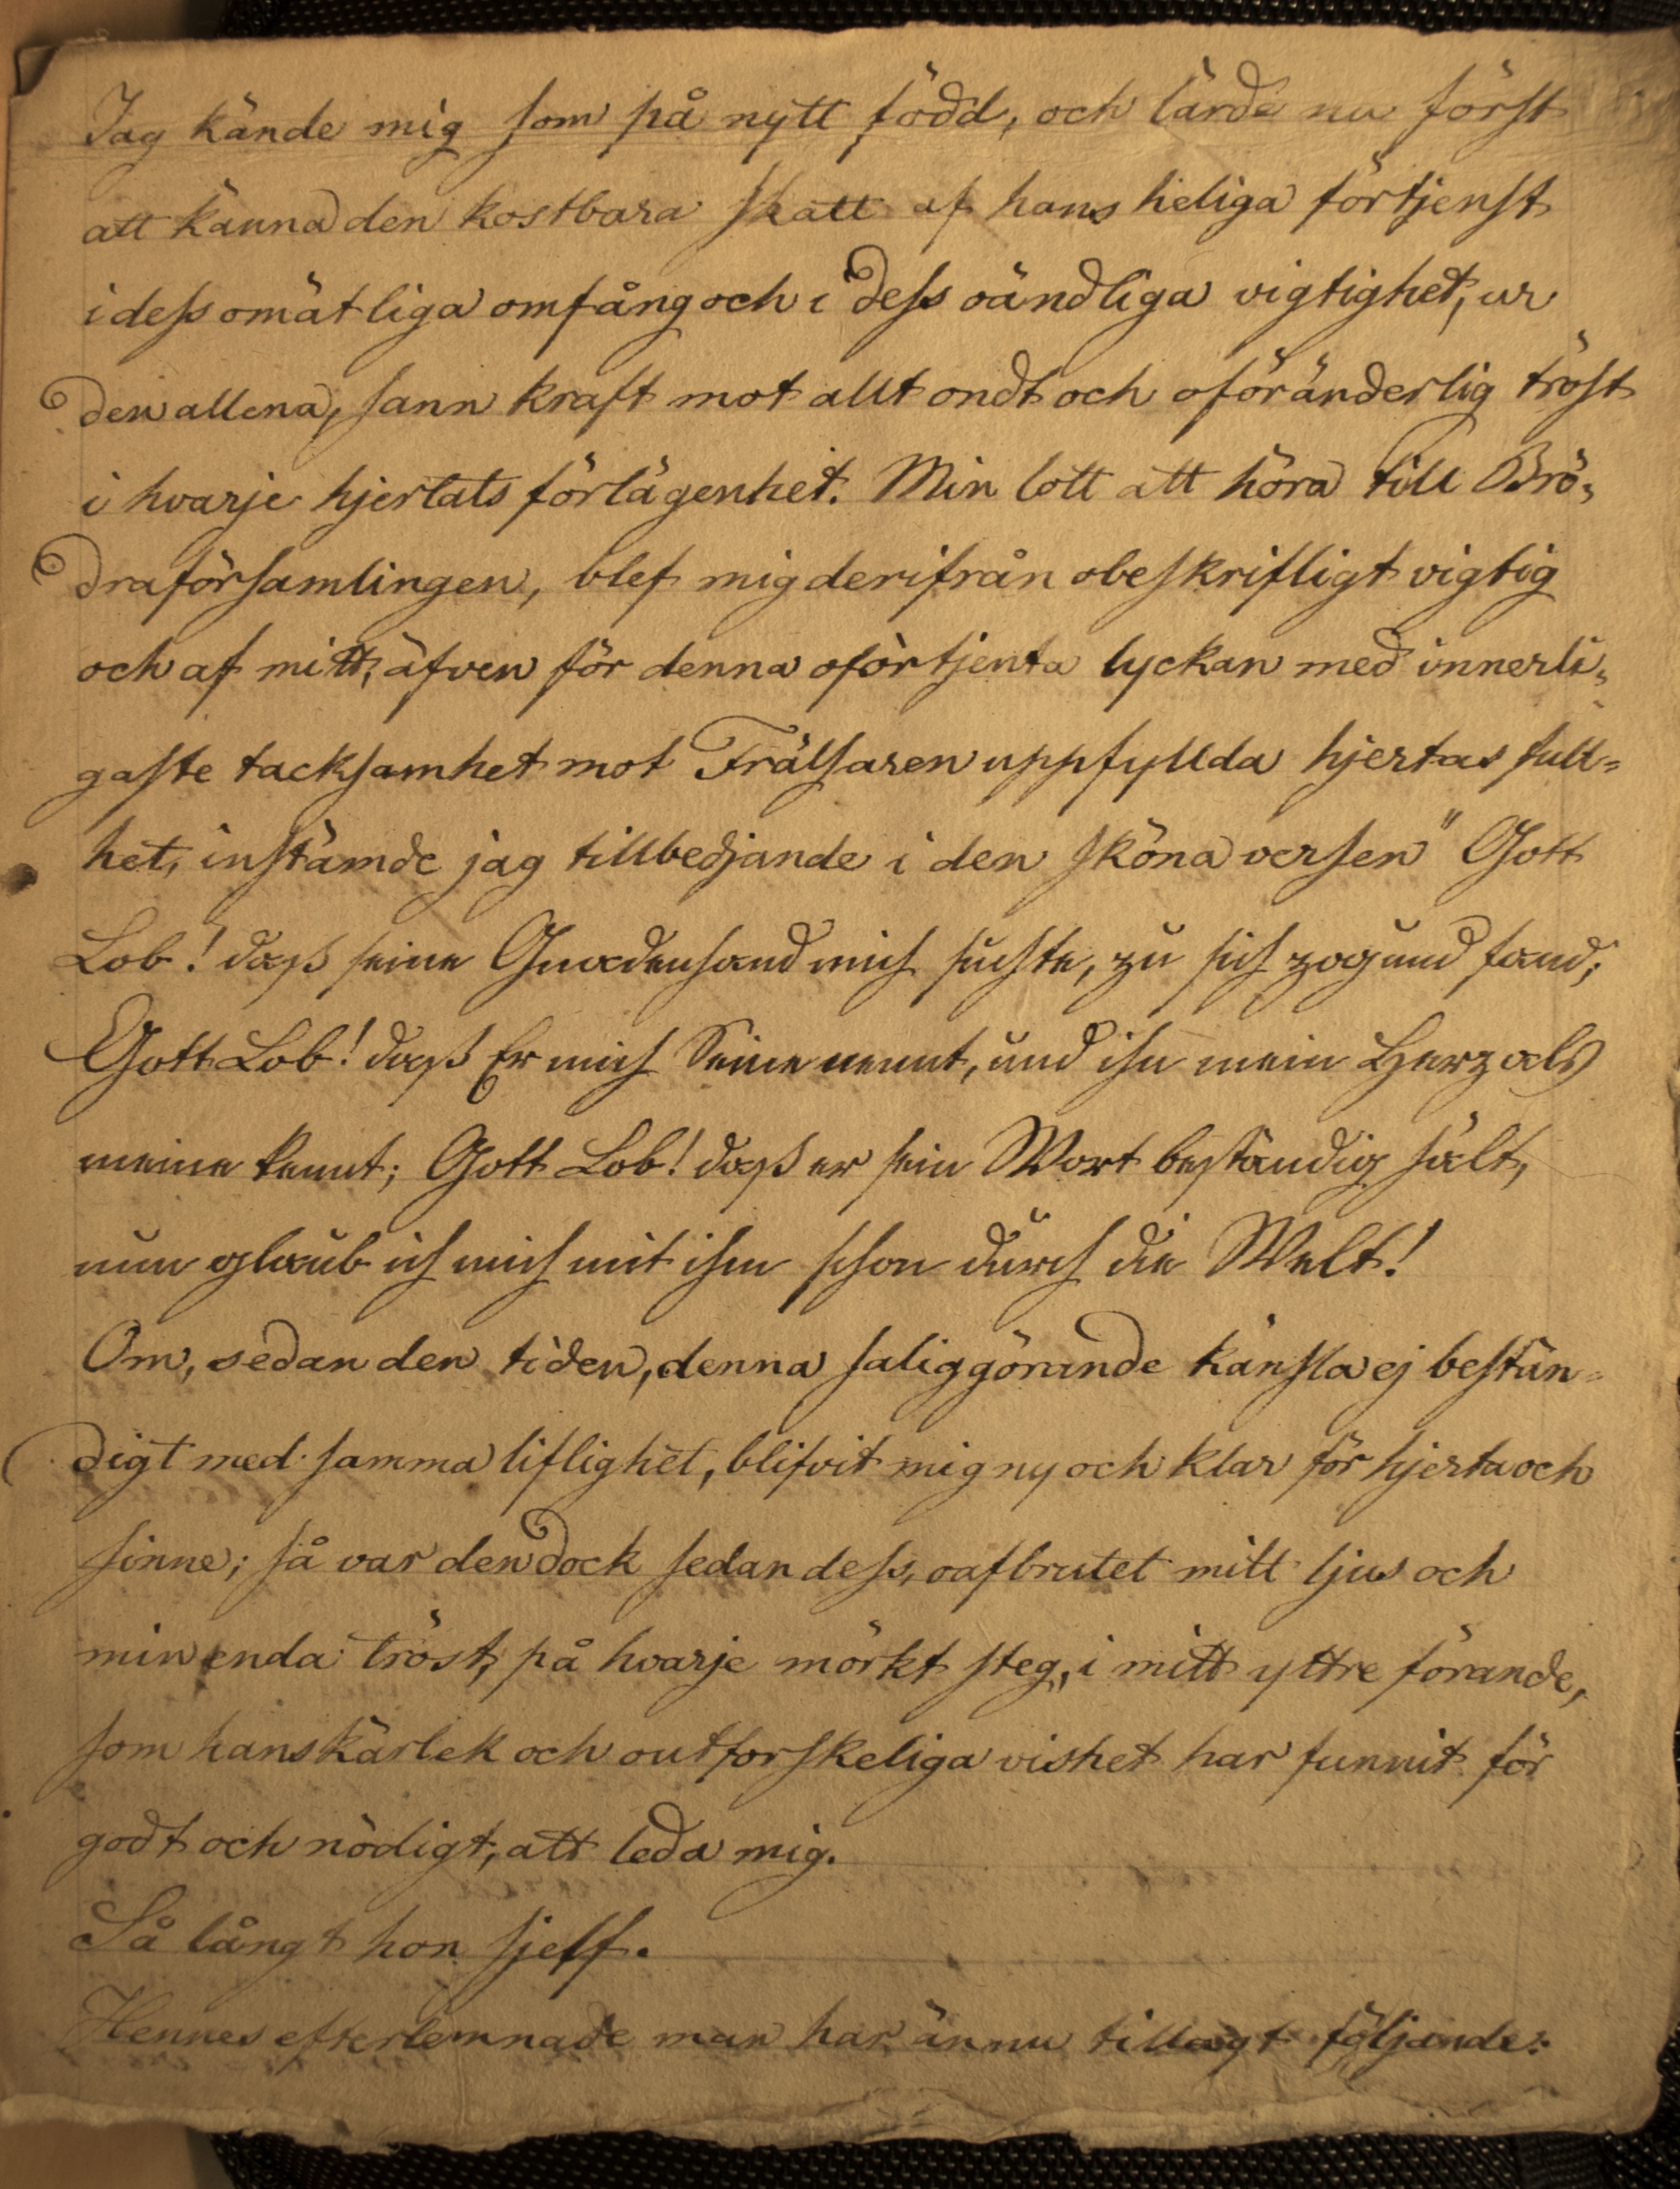 Jag kände mig som på nytt född, och lärde nu först
att känna den kostbara skatt af hans heliga förtjenst
i dess omätliga omfång och i dess oändliga vigtighet, ur
den allena, sann kraft mot allt ondt och oföränderlig tröst
i hvarje hjertats förlägenhet. Min lott att höra till Brö-
draförsamlingen, blef mig derifrån obeskrifligt vigtig
och af mitt, äfven för denna oförtjenta lyckan med innerli-
gaste tacksamhet mot Frälsaren uppfyllda hjertas full-
het, instämde jag tillbedjande i den sköna versen "Gott
Lob! daß seine Gnadenhand mich suchte, zu sich zog und fand;
Gott Lob! daß Er mich Seine nennt, und ihn mein Herz als
meine kennt; Gott Lob! daß er sein Wort beständig hält,
nun glaub ich mich mit ihm schon durch die Welt!
Om, sedan den tiden, denna saliggörande känsla ej bestän-
digt med samma liflighet, blifvit mig ny och klar för hjerta och
sinne; så var den dock sedan dess, oafbrutet mitt ljus och
min enda tröst, på hvarje mörkt steg, i mitt yttre förande,
som hans kärlek och outforskeliga vishet har funnit för
godt och nödigt, att leda mig.
Så långt hon sjelf.
Hennes efterlemnade man har ännu tillagt följande: